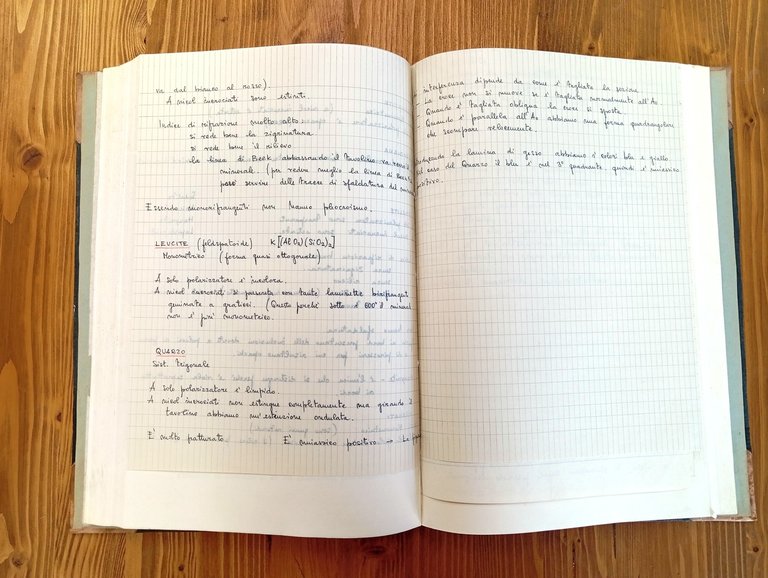 va dal bianco al rosso).
A nicol incrociati sono estinti.
Indice di rifrazione molto alto
si vede bene la zigrinatura
si vede bene il rilievo
la linea di Beck abbassando il tavolino va verso il
minerale. (per vedere meglio la linea di Beck
posso servirmi delle tracce di sfaldatura del
Essendo monorifrangenti non hanno pleocroismo.
LEUCITE (feldspatoide) K[(AlO2)(SiO2)2]
Monometrico (forma quasi ottogonale)
A solo polarizzatore è incolora.
A nicol incrociati si presenta con tante laminette birifrangenti
geminate a graticci. (Questo perché sotto i 600° il minerale
non è più monometrico.
QUARZO
Sist. trigonale
A solo polarizzatore è limpido.
A nicol incrociati non estingue completamente ma girando il
tavolino abbiamo un'estinzione ondulata.
E' molto fatturato. E' uniassico positivo → La
interferenza dipende da come è tagliata la sezione.
- La croce non si muove se è tagliata normalmente all'Ao
- Quando è tagliata obliqua la croce si sposta.
- Quando è parallela all'Ao abbiamo una forma quadrangolare
che scompare velocemente.
la lamina di gesso abbiamo i colori blu e giallo.
nel caso del Quarzo il blu è nel 3° quadrante, quindi è uniassico
positivo.